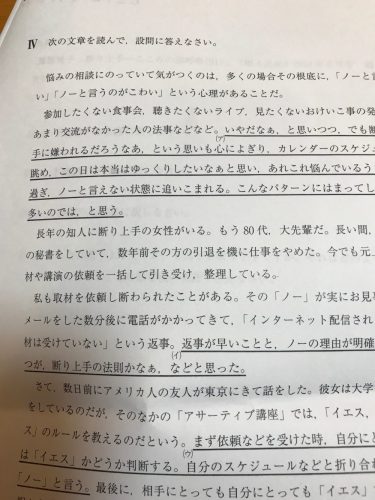 Ⅳ 次の文章を読んで,設問に答えなさい。
悩みの相談にのっていて気がつくのは,多くの場合その根底に,「ノーと
い」「ノーと言うのがこわい」という心理があることだ。
参加したくない食事会,聴きたくないライブ,見たくないおけいこ事の発
あまり交流がなかった人の法事などなど。いやだなぁ,と思いつつ,でも断
(ア)
手に嫌われるだろうなあ,という思いも心によぎり,カレンダーのスケジュ
眺め,この日は本当はゆっくりしたいなぁと思い,あれこれ悩んでいるう
過ぎ,ノーと言えない状態に追いこまれる。こんなパターンにはまってし
多いのでは,と思う。
長年の知人に断り上手の女性がいる。もう80代,大先輩だ。長い間,
の秘書をしていて,数年前その方の引退を機に仕事をやめた。今でも元
材や講演の依頼を一括して引き受け,整理している。
私も取材を依頼し断わられたことがある。その「ノー」が実にお見
メールをした数分後に電話がかかってきて,「インターネット配信され
材は受けていない」という返事。返事が早いことと,ノーの理由が明確
(イ)
つが,断り上手の法則かなぁ,などと思った。
さて,数日前にアメリカ人の友人が東京にきて話をした。彼女は大学
をしているのだが,そのなかの「アサーティブ講座」では,「イエス,
ス」のルールを教えるのだという。まず依頼などを受けた時,自分に
(ウ)
は「イエス」かどうか判断する。自分のスケジュールなどと折り合
「ノー」と言う。最後に,相手にとっても自分にとっても「イエス